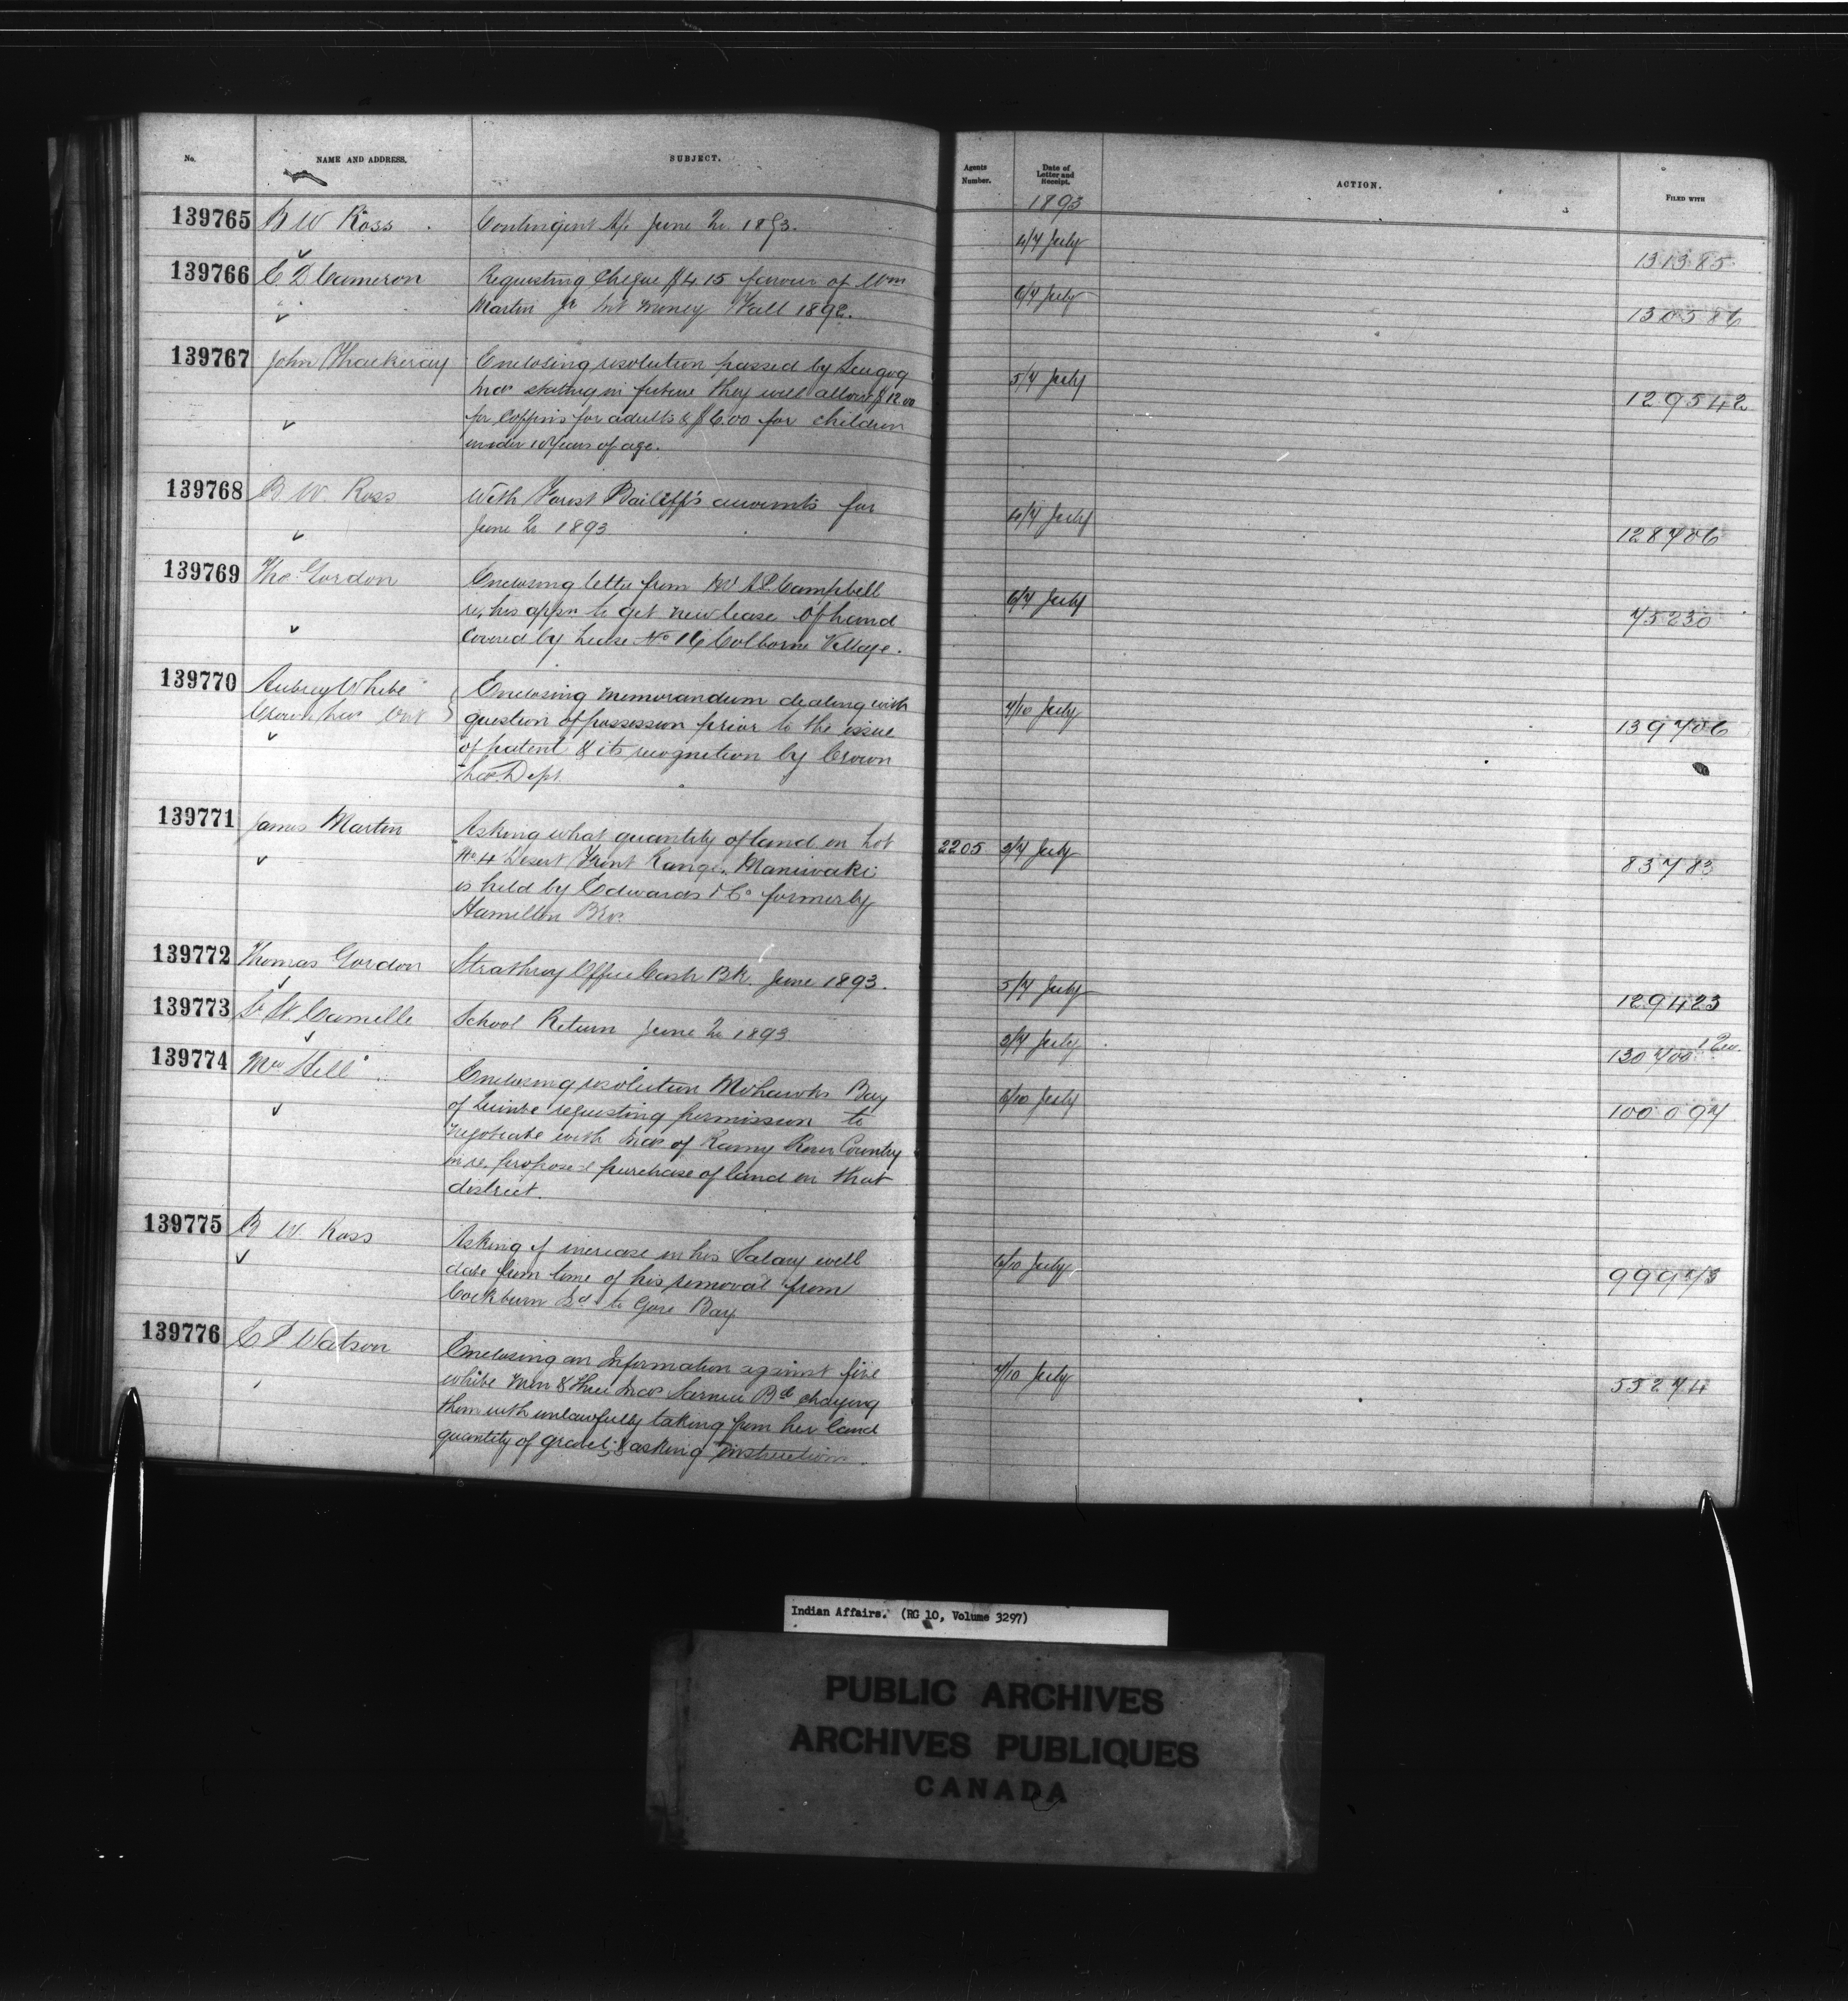 No. NAME AND ADDRESS. SUBJECT. Agents Number. Date of Letter and Receipt. ACTION. FILED WITH
1893
139765 B W Ross Contingent a/c June Qr 1893. 4/7 July 131385
139766 E D Cameron Requesting Cheque $4.15 favour of Wm 6/7 July 130586
Martin Jr Int money Fall 1892.
139767 John Thackeray Enclosing resolution passed by Scugog 5/7 July 129542
Inds stating in future they will allow $12.00
for Coffins for adults & $6.00 for children
under 10 Years of age.
139768 B W. Ross With Forest Bailiff's accounts for 4/7 July 128706
June Qr 1893
139769 Thos. Gordon Enclosing letter from Mr A.P. Campbell 6/7 July 75230
re, his appn to get new lease of land
Covered by Lease No 16 Colborne Village.
139770 Aubrey White Enclosing memorandum dealing with 7/10 July 139706
Crown Lds Ont question of possession prior to the issue
of patent & its recognition by Crown
Lds. Dept.
139771 James Martin Asking what quantity of land on Lot 2205 3/7 July 83783
No 4 Desert Front Range, Maniwaki
is held by Edwards & Co formerly
Hamilton Bros.
139772 Thomas Gordon Strathroy Office Cash Bk. June 1893. 5/7 July 129423
139773 Camille School Return June Qr 1893 3/7 July 130700
139774 Mrs Hill Enclosing resolution Mohawks Bay 6/10 July 100097
of Quinte requesting permission to
negotiate with Inds of Rainy River Country
in re, proposed purchase of land in that
district.
139775 B W. Ross Asking if increase in his Salary will 6/10 July 99973
date from time of his removal from
Cockburn Id to Gore Bay
139776 E P Watson Enclosing an Information against five 7/10 July 55274
white men & three Inds Sarnia Bd charging
them with unlawfully taking from her land
quantity of gravel; & asking instructions.
Indian Affairs. (RG 10, Volume 3297)
PUBLIC ARCHIVES
ARCHIVES PUBLIQUES
CANADA